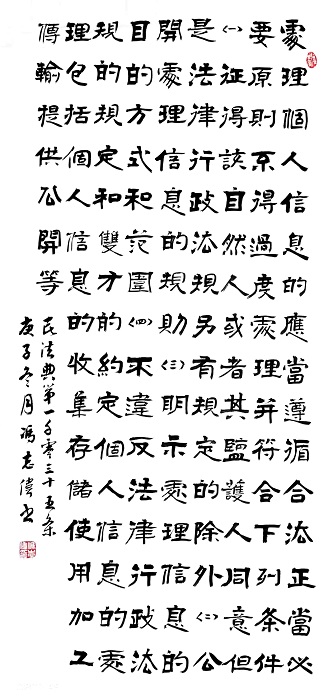 處理個人信息的應當遵循合法正當必
要原則不得過度處理并符合下列條件
(一)征得該自然人或者其監護人同意但
是法律行政法規另有規定的除外(二)公
開處理信息的規則(三)明示處理信息的
目的方式和范圍(四)不違反法律行政法
規的規定和雙方的約定個人信息的處
理包括個人信息的收集存儲使用加工
傳輸提供公開等
民法典第一千零三十五條
庚子冬月馮志偉书